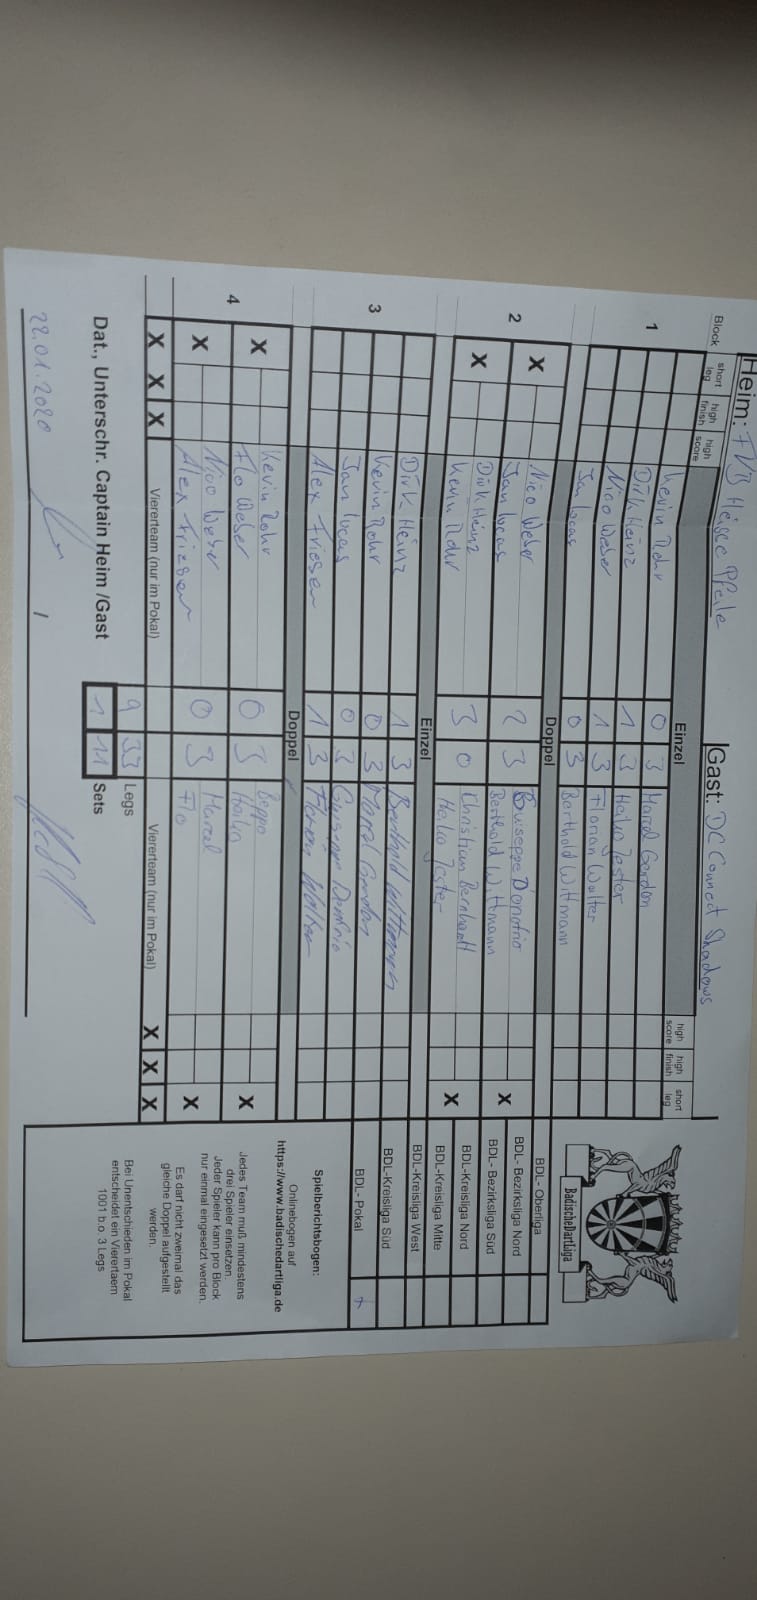 Heim: FVB Heisse Pfeile Gast: DC Connect Shadows
Block short leg high finish high score Einzel high score high finish short leg
1 Kevin Rohr 0 3 Marcel Gordon
Dirk Heinz 1 3 Heiko Jester
Nico Weber 1 3 Florian Walter
Jan Lucas 0 3 Berthold Wittmann
Doppel
2 X Nico Weber 2 3 Guiseppe Donofrio X
Jan Lucas Berthold Wittmann
X Dirk Heinz 3 0 Christian Bernhardt X
Kevin Rohr Heiko Jester
Einzel
3 Dirk Heinz 1 3 Berthold Wittmann
Kevin Rohr 0 3 Marcel Gordon
Jan Lucas 0 3 Guiseppe Donofrio
Alex Friesen 1 3 Florian Walter
Doppel
4 X Kevin Rohr 0 3 Beppo X
Flo Weber Heiko
X Nico Weber 0 3 Marcel X
Alex Friesen Flo
X X X Viererteam (nur im Pokal) Viererteam (nur im Pokal) X X X
9 33 Legs
Dat., Unterschr. Captain Heim /Gast 1 11 Sets
22.01.2020 /
BadischeDartLiga
BDL- Oberliga
BDL- Bezirksliga Nord
BDL- Bezirksliga Süd
BDL-Kreisliga Nord
BDL-Kreisliga Mitte
BDL-Kreisliga West
BDL-Kreisliga Süd
BDL- Pokal +
Spielberichtsbogen:
Onlinebogen auf
https://www.badischedartliga.de
Jedes Team muß mindestens
drei Spieler einsetzen.
Jeder Spieler kann pro Block
nur einmal eingesetzt werden.
Es darf nicht zweimal das
gleiche Doppel aufgestellt
werden.
Bei Unentschieden im Pokal
entscheidet ein Vierertaem
1001 b.o. 3 Legs